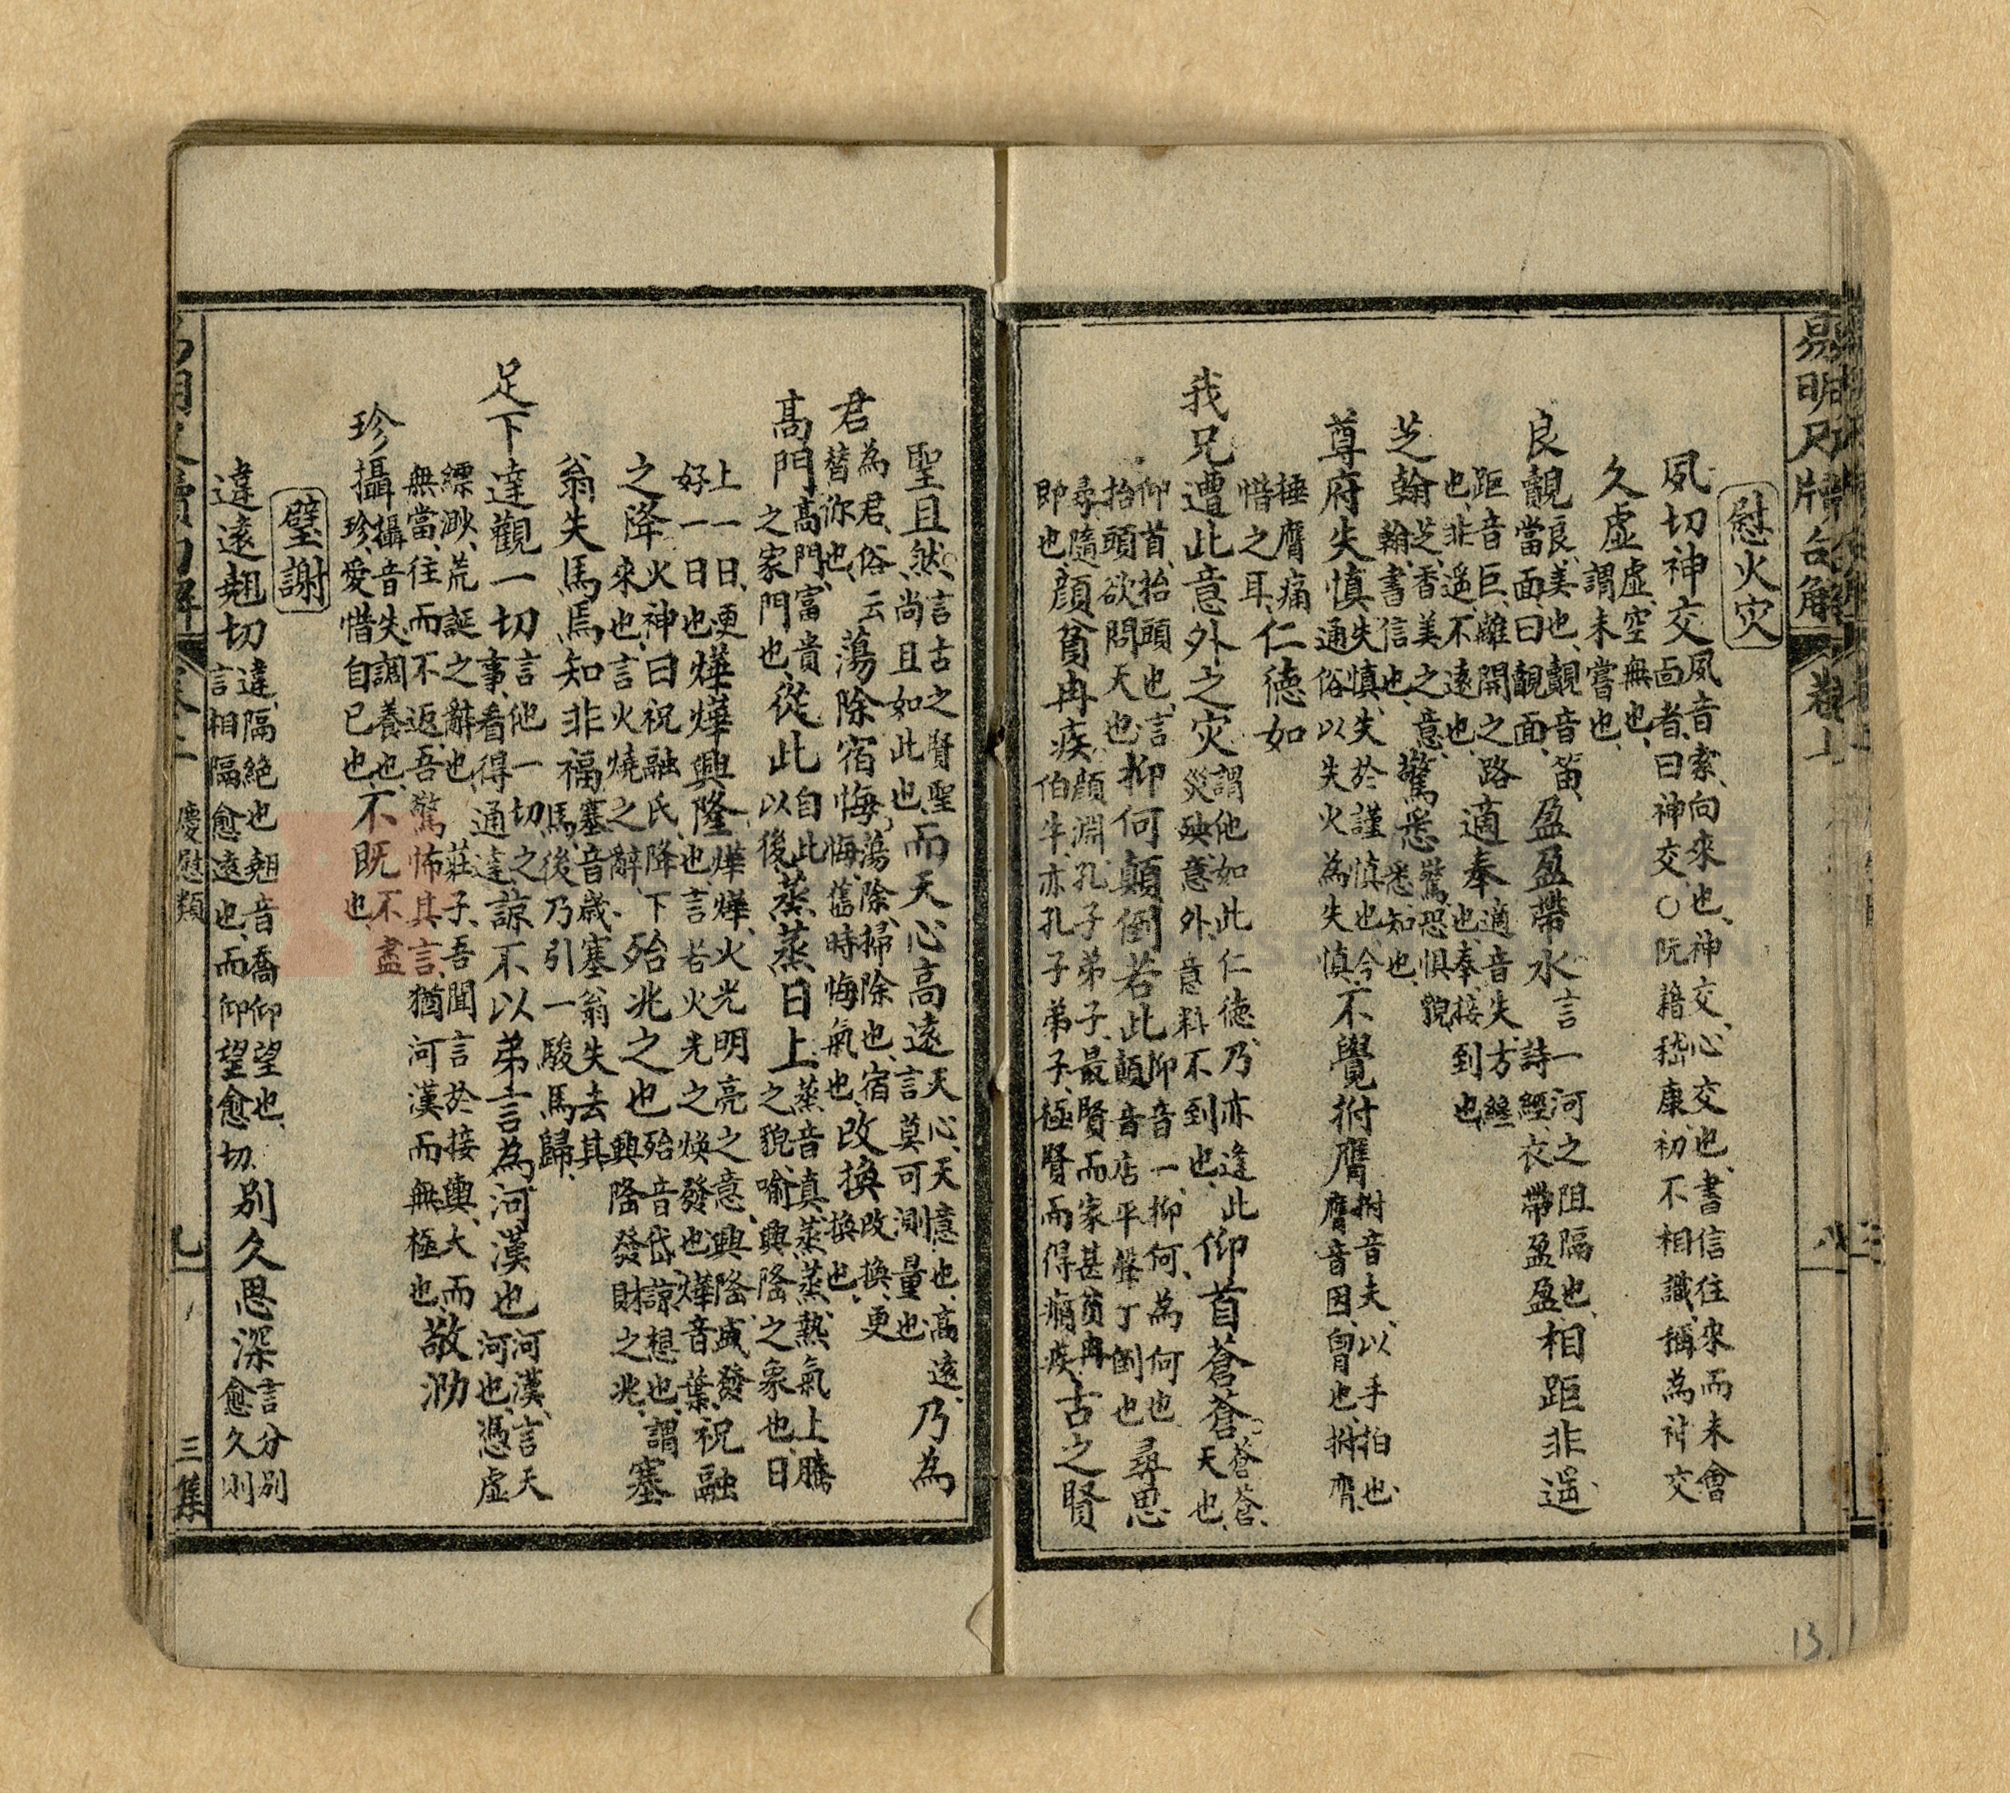 易明尺牘句解 卷上 八
慰火灾
夙切神交夙音素、向來也、神交、心交也、書信往來而未會面者、曰神交、○阮籍嵇康、初不相識、稱為神交
久虛虛空無也、謂未嘗也、
良覿良、美也、覿音笛、當面曰覿面、盈盈帶水言一河之阻隔也、詩經、衣帶盈盈、相距非遥
距音巨、離開之路也、非遥、不遠也、適奉適音失、方纔也、奉、接到也
芝翰芝、香美之意、翰、書信也、驚悉驚、恐惧貌、悉、知也、
尊府失慎失慎、失於謹慎也、今通俗以失火為失慎、不覺拊膺拊音夫、以手拍也、膺音因、胷也、拊膺、
捶膺痛惜之耳、仁德如
我兄遭此意外之灾謂他如此仁德、乃亦逢此災殃、意外、意料不到也、仰首蒼蒼蒼蒼、天也、
仰首、抬頭也、言抬頭欲問天也抑何顛倒若此抑音一、抑何、為何也顛音店平聲丁倒也尋思
尋隨即也、顔貧冉疾顔淵、孔子弟子、最賢而家甚貧、冉伯牛、亦孔子弟子、極賢而得痼疾、古之賢
聖且然、言古之賢聖、尚且如此也、而天心高遠天心、天意也、高遠、言莫可測量也乃為
君為君、俗云替你也、蕩除宿悔蕩除、掃除也、宿悔、舊時悔氣也、改換改換、更換也、
高門高門、富貴之家門也、從此自此以後、蒸蒸日上蒸音真、蒸蒸、熱氣上騰之貌、喻興隆之象也、日
上一日、更好一日也燁燁興隆燁燁、火光明亮之意、興隆、盛發也、言若火光之煥發也、燁音葉、祝融
之降火神曰祝融氏、降下來也、言火燒之辭、殆兆之也殆音岱、諒想也、謂興隆發財之兆、塞
翁失馬焉知非福塞音歲、塞翁失去其馬、後乃引一駿馬歸、
足下達觀一切言他一切之事、看得通達、諒不以弟言為河漢也河漢、言天河也、憑虛
縹渺、荒誕之辭也、莊子、吾聞言於接輿、大而無當、往而不返、吾驚怖其言、猶河漢而無極也、敬泐
珍攝攝音失、調養也、珍、愛惜自已也、不既不盡也、
璧謝
違遠翹切違、隔絶也、翹音喬、仰望也、言相隔愈遠也、而仰望愈切、別久思深言分別愈久、則
慶慰類 九 三集